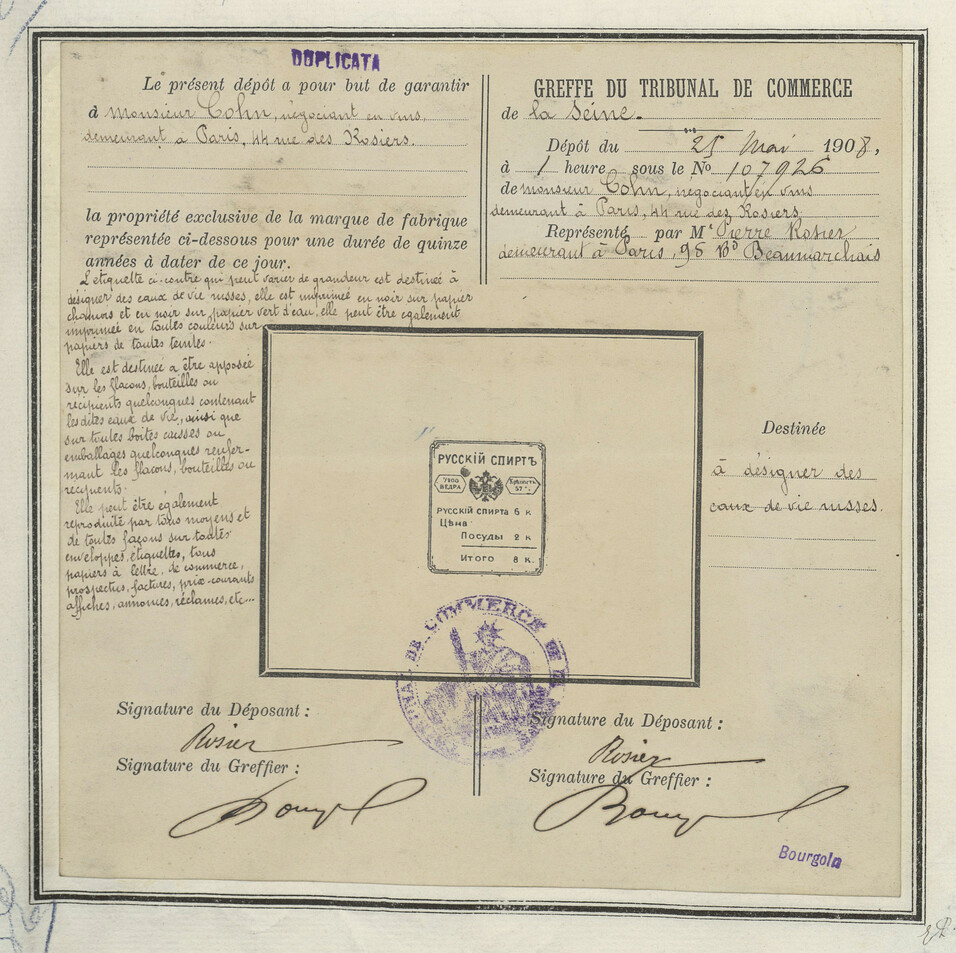 DUPLICATA
Le présent dépôt a pour but de garantir
à Monsieur Cohn, négociant en vins,
demeurant à Paris, 44 rue des Rosiers.
la propriété exclusive de la marque de fabrique
représentée ci-dessous pour une durée de quinze
années à dater de ce jour.
L'étiquette ci-contre qui peut varier de grandeur est destinée à
désigner des eaux de vie russes, elle est imprimée en noir sur papier
chamois et en noir sur papier vert d'eau, elle peut être également
imprimée en toutes couleurs sur
papiers de toutes teintes.
Elle est destinée à être apposée
sur les flacons, bouteilles ou
récipients quelconques contenant
les dites eaux de vie, ainsi que
sur toutes boites caisses ou
emballages quelconques renfer-
mant les flacons, bouteilles ou
récipients.
Elle peut être également
reproduite par tous moyens et
de toutes façons sur toutes
enveloppes, étiquettes, tous
papiers à lettre, de commerce,
prospectus, factures, prix-courants
affiches, annonces, réclames, etc...
GREFFE DU TRIBUNAL DE COMMERCE
de la Seine.
Dépôt du 25 Mai 1908,
à 1 heure sous le No 107926
de monsieur Cohn, négociant en vins
demeurant à Paris, 44 rue des Rosiers,
Représenté par Mr Pierre Rosier
demeurant à Paris, 98 Bd Beaumarchais
РУССКІЙ СПИРТЪ
ВЕДРА
РУССКІЙ СПИРТА 6 К
Цѣна
Посуды 2 к
Итого 8 к.
Destinée
à désigner des
eaux de vie russes.
DE COMMERCE DE
Signature du Déposant :
Rosier
Signature du Greffier :
Signature du Déposant :
Rosier
Signature du Greffier :
Bourgoin